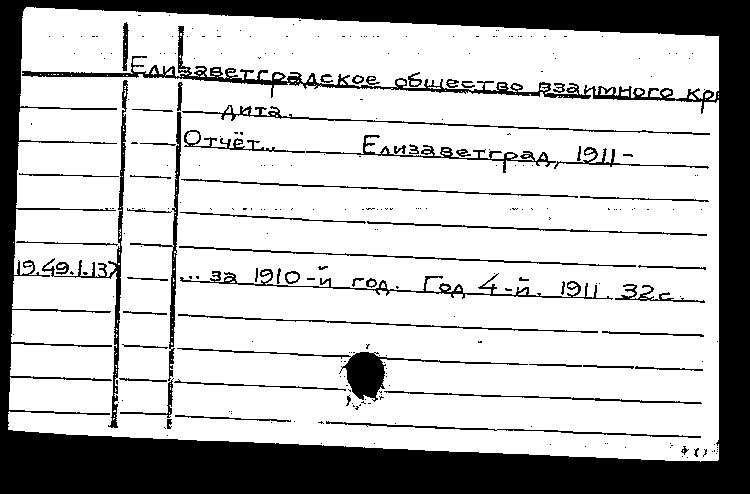 Елизаветградское общество взаимного кре
дита.
Отчёт... Елизаветград, 1911-
19.49.1.137 ... за 1910-й год. Год 4-й. 1911. 32с.